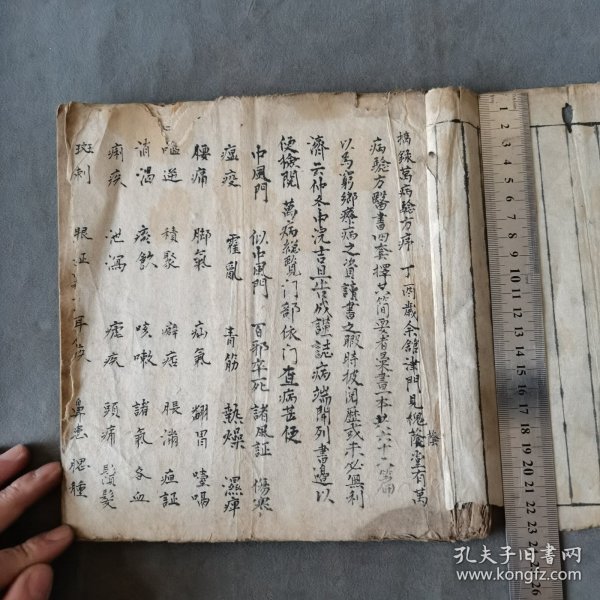 摘錄萬病驗方序 丁酉歲余館津門見槐蔭堂有萬
蔭
病驗方醫書四套擇其簡要者彙書一本共六十六篇
以為窮鄉療病之資讀書之暇時披閱歷或未必無利
濟云仲冬中浣吉旦告成謹誌病端開列書邊以
便檢閱 萬病総覽门部依门查病甚便
中風門 似中風門 百邪卒死 諸風証 傷寒
瘟疫 霍亂 青筋 熱燥 濕痺
腰痛 脚氣 疝氣 翻胃 噎嗝
嘔逆 積聚 癖痞 脹滿 疸証
消渴 痰飲 咳嗽 諸氣 各血
痢疾 泄瀉 瘧疾 頭痛 鬚髮
斑剝 眼証 耳 鼻患 腮腫
1 2 3 4 5 6 7 8 9 10 11 12 13 14 15 16 17 18 19 20 21 22 23 24 25 26
孔夫子旧书网
www.kongfz.com